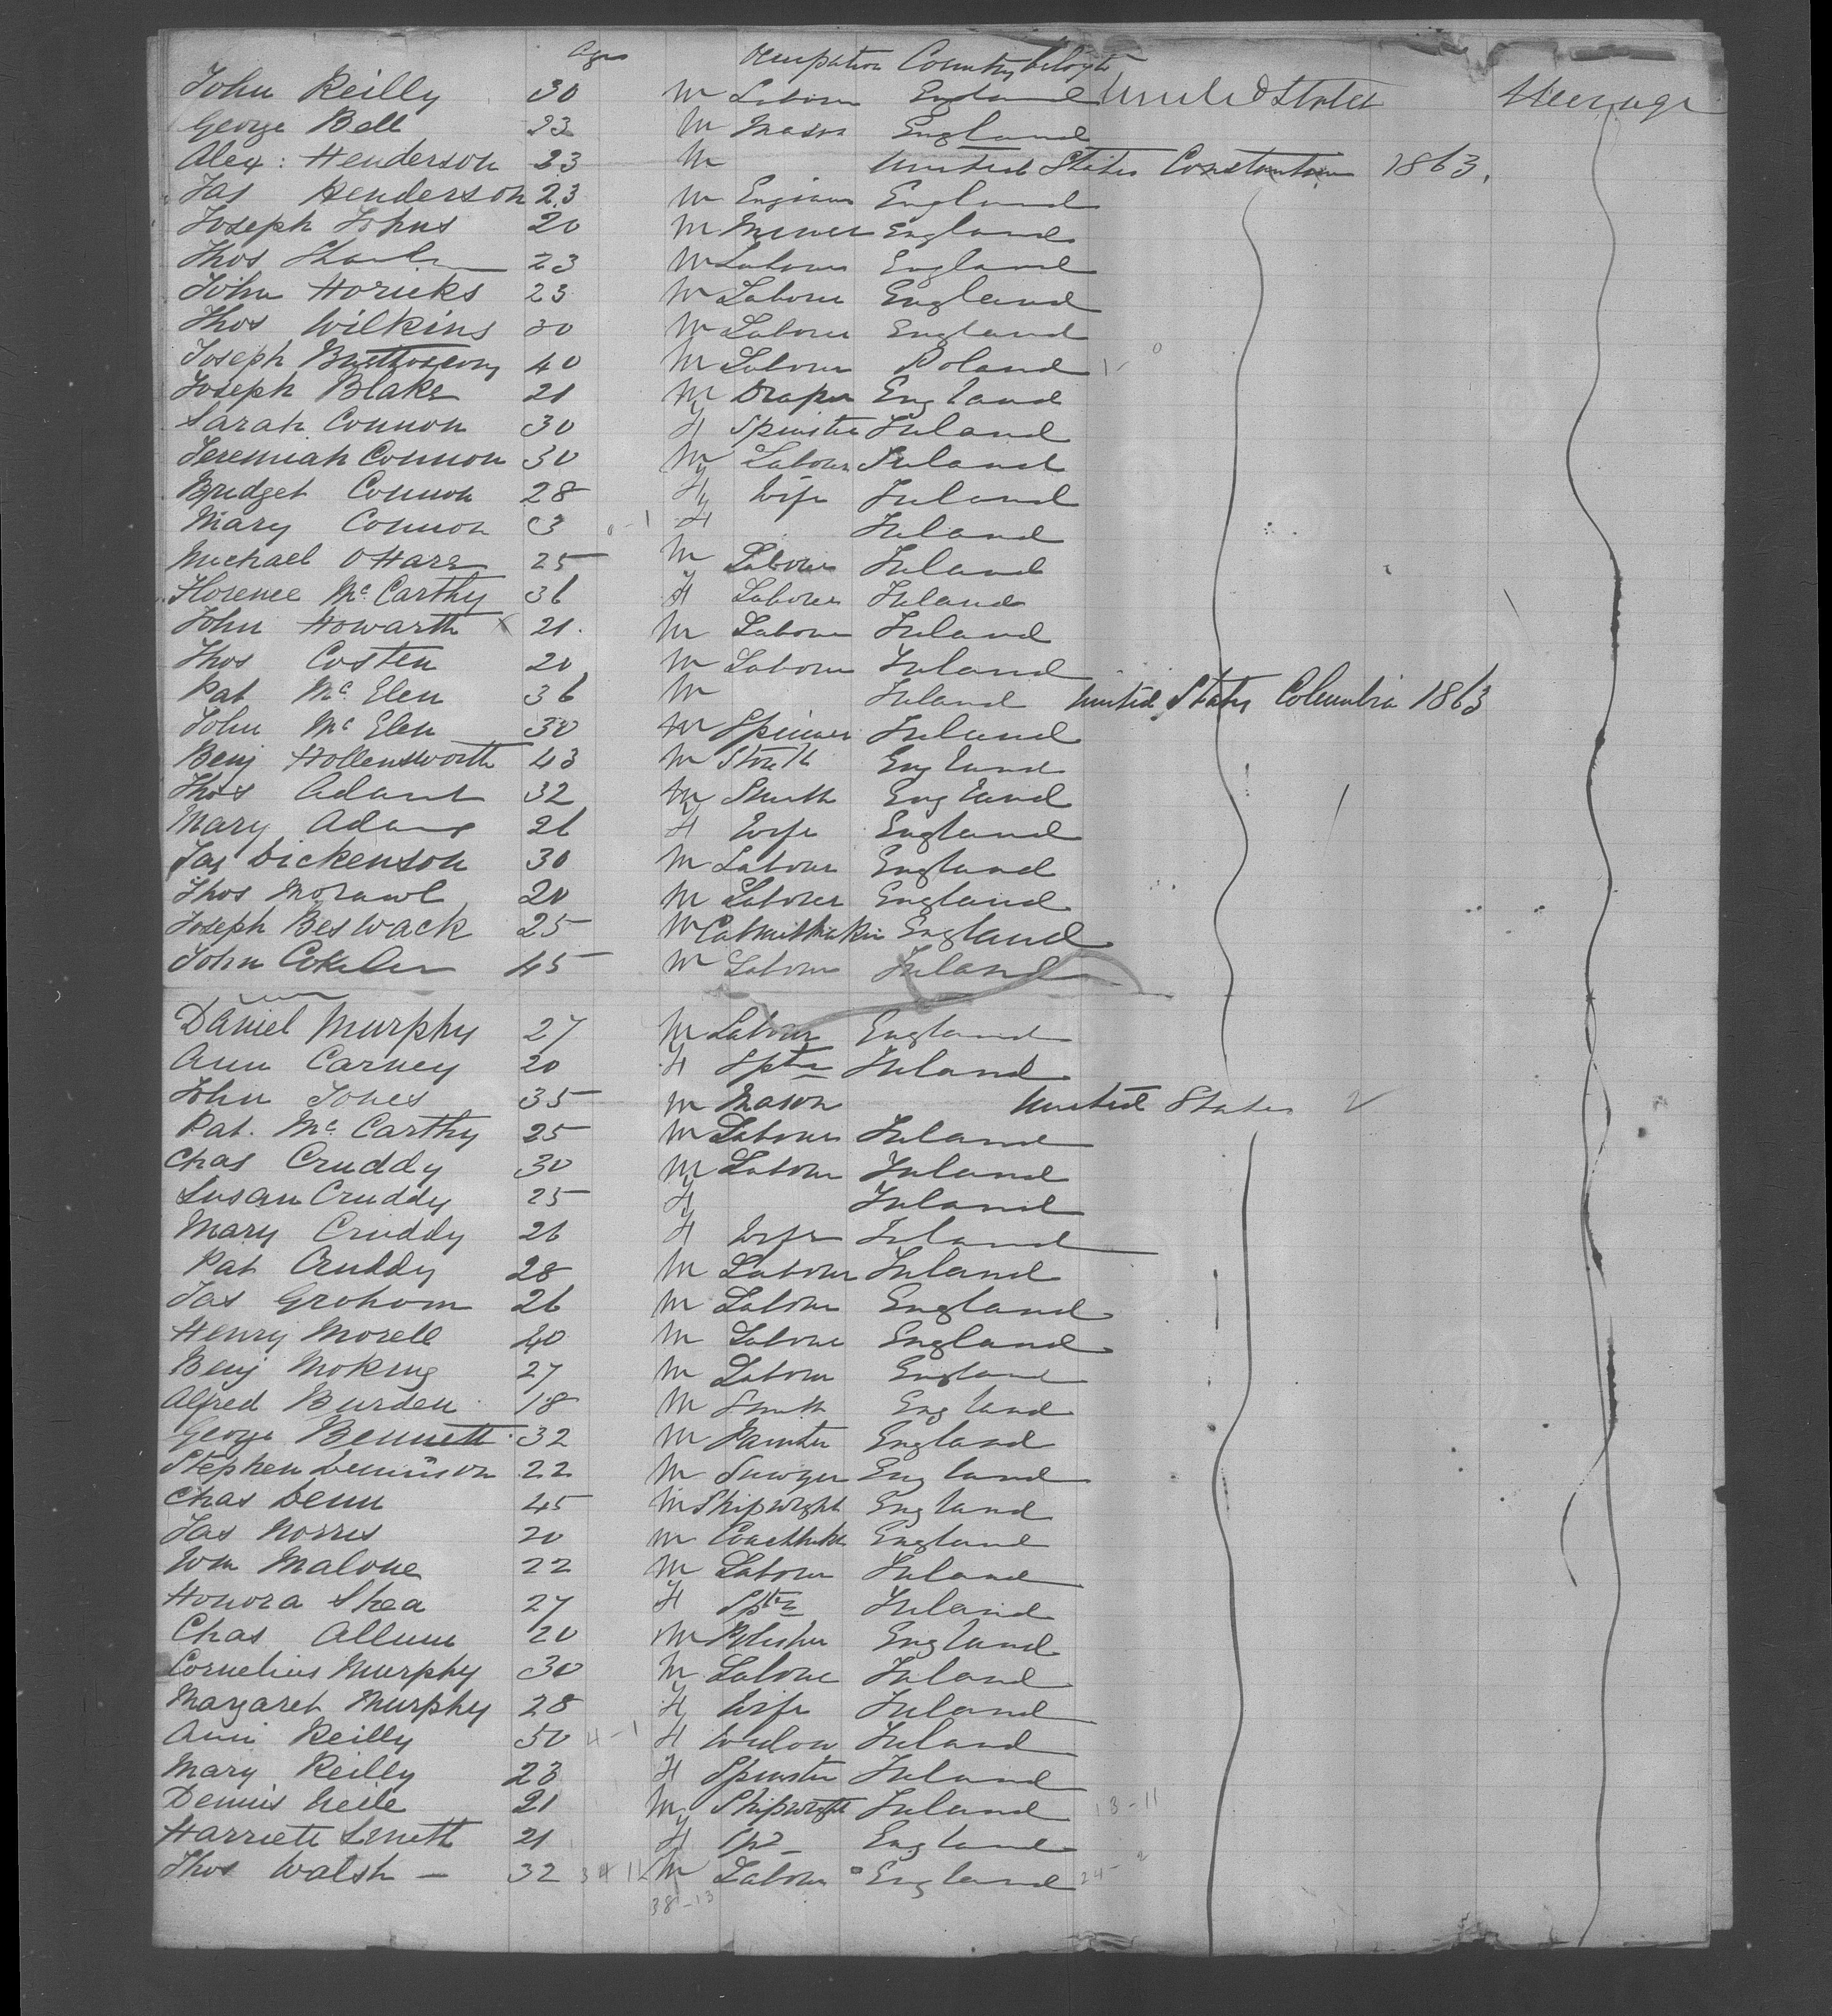 Ages Occupation Country belong to
John Reilly 30 M Labour England United States Steerage
George Bell 23 M Mason England
Alex: Henderson 23 M United States Constantine 1863.
Jas Henderson 23 M England
Joseph Johns 20 M England
Thos 23 M Labour England
John Horicks 23 M Labour England
Thos Wilkins 30 M Labour England
Joseph 40 M Labour Poland
Joseph Blake 21 M Draper England
Sarah Connon 30 F Spinster Ireland
Jeremiah Connon 30 M Labour Ireland
Bridget Connon 28 F Wife Ireland
Mary Connon 3 F Ireland
Michael OHara 25 M Labour Ireland
Florence McCarthy 36 F Labour Ireland
John Howarth 21 M Labour Ireland
Thos Costen 20 M Labour Ireland
Pat McElen 36 M Ireland United States Columbia 1863
John McElen 30 M Spinner Ireland
Benj Hollensworth 43 M England
Thos Adams 32 M Smith England
Mary Adams 26 F Wife England
Jas Dickenson 30 M Labour England
Thos 20 M Labour England
Joseph Beswack 25 M England
John 45 M Labour Ireland
Daniel Murphy 27 M Labour England
Ann Carney 20 F Sptr Ireland
John Jones 35 M Mason United States
Pat. McCarthy 25 M Labour Ireland
Chas Cruddy 30 M Labour Ireland
Susan Cruddy 25 F Ireland
Mary Cruddy 26 F Wife Ireland
Pat Cruddy 28 M Labour Ireland
Jas Groham 26 M Labour England
Henry Morell 40 M Labour England
Benj 27 M Labour England
Alfred Burden 18 M Smith England
George Bennett 32 M Painter England
Stephen Dennison 22 M Sawyer England
Chas Denn 45 M Shipwright England
Jas Norris 20 M England
Wm Malone 22 M Labour Ireland
Honora Shea 27 F Sptr Ireland
Chas Allum 20 M Polisher England
Cornelius Murphy 30 M Labour Ireland
Margaret Murphy 28 F Wife Ireland
Ann Reilly 50 F Widow Ireland
Mary Reilly 23 F Spinster Ireland
Dennis Neile 21 M Shipwright Ireland 13-11
Harriett Smith 21 F England
Thos Walsh 32 M Labour England
38-13